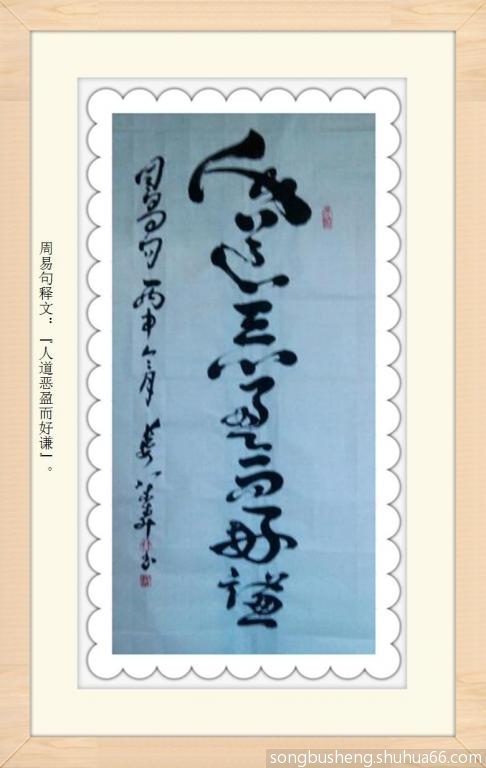 人道惡盈而好謙
周易句 丙申
周易句释文：『人道恶盈而好谦』。
songbusheng.shuhua66.com